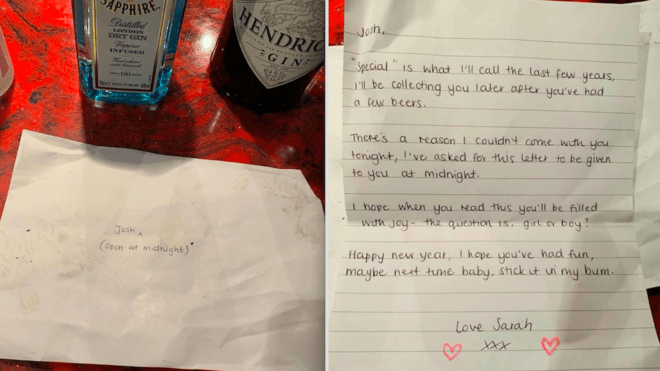 SAPPHIRE.
Distilled
LONDON
DRY GIN
Vapour
INFUSED
HENDRIC
GIN
Josh,
(open at midnight)
Josh,
"Special" is what I'll call the last few years,
I'll be collecting you later after you've had
a few beers.
There's a reason I couldn't come with you
tonight, I've asked for this letter to be given
to you at midnight.
I hope when you read this you'll be filled
with joy - the question is, girl or boy?
Happy new year, I hope you've had fun,
maybe next time baby, stick it in my bum.
Love Sarah
xxx